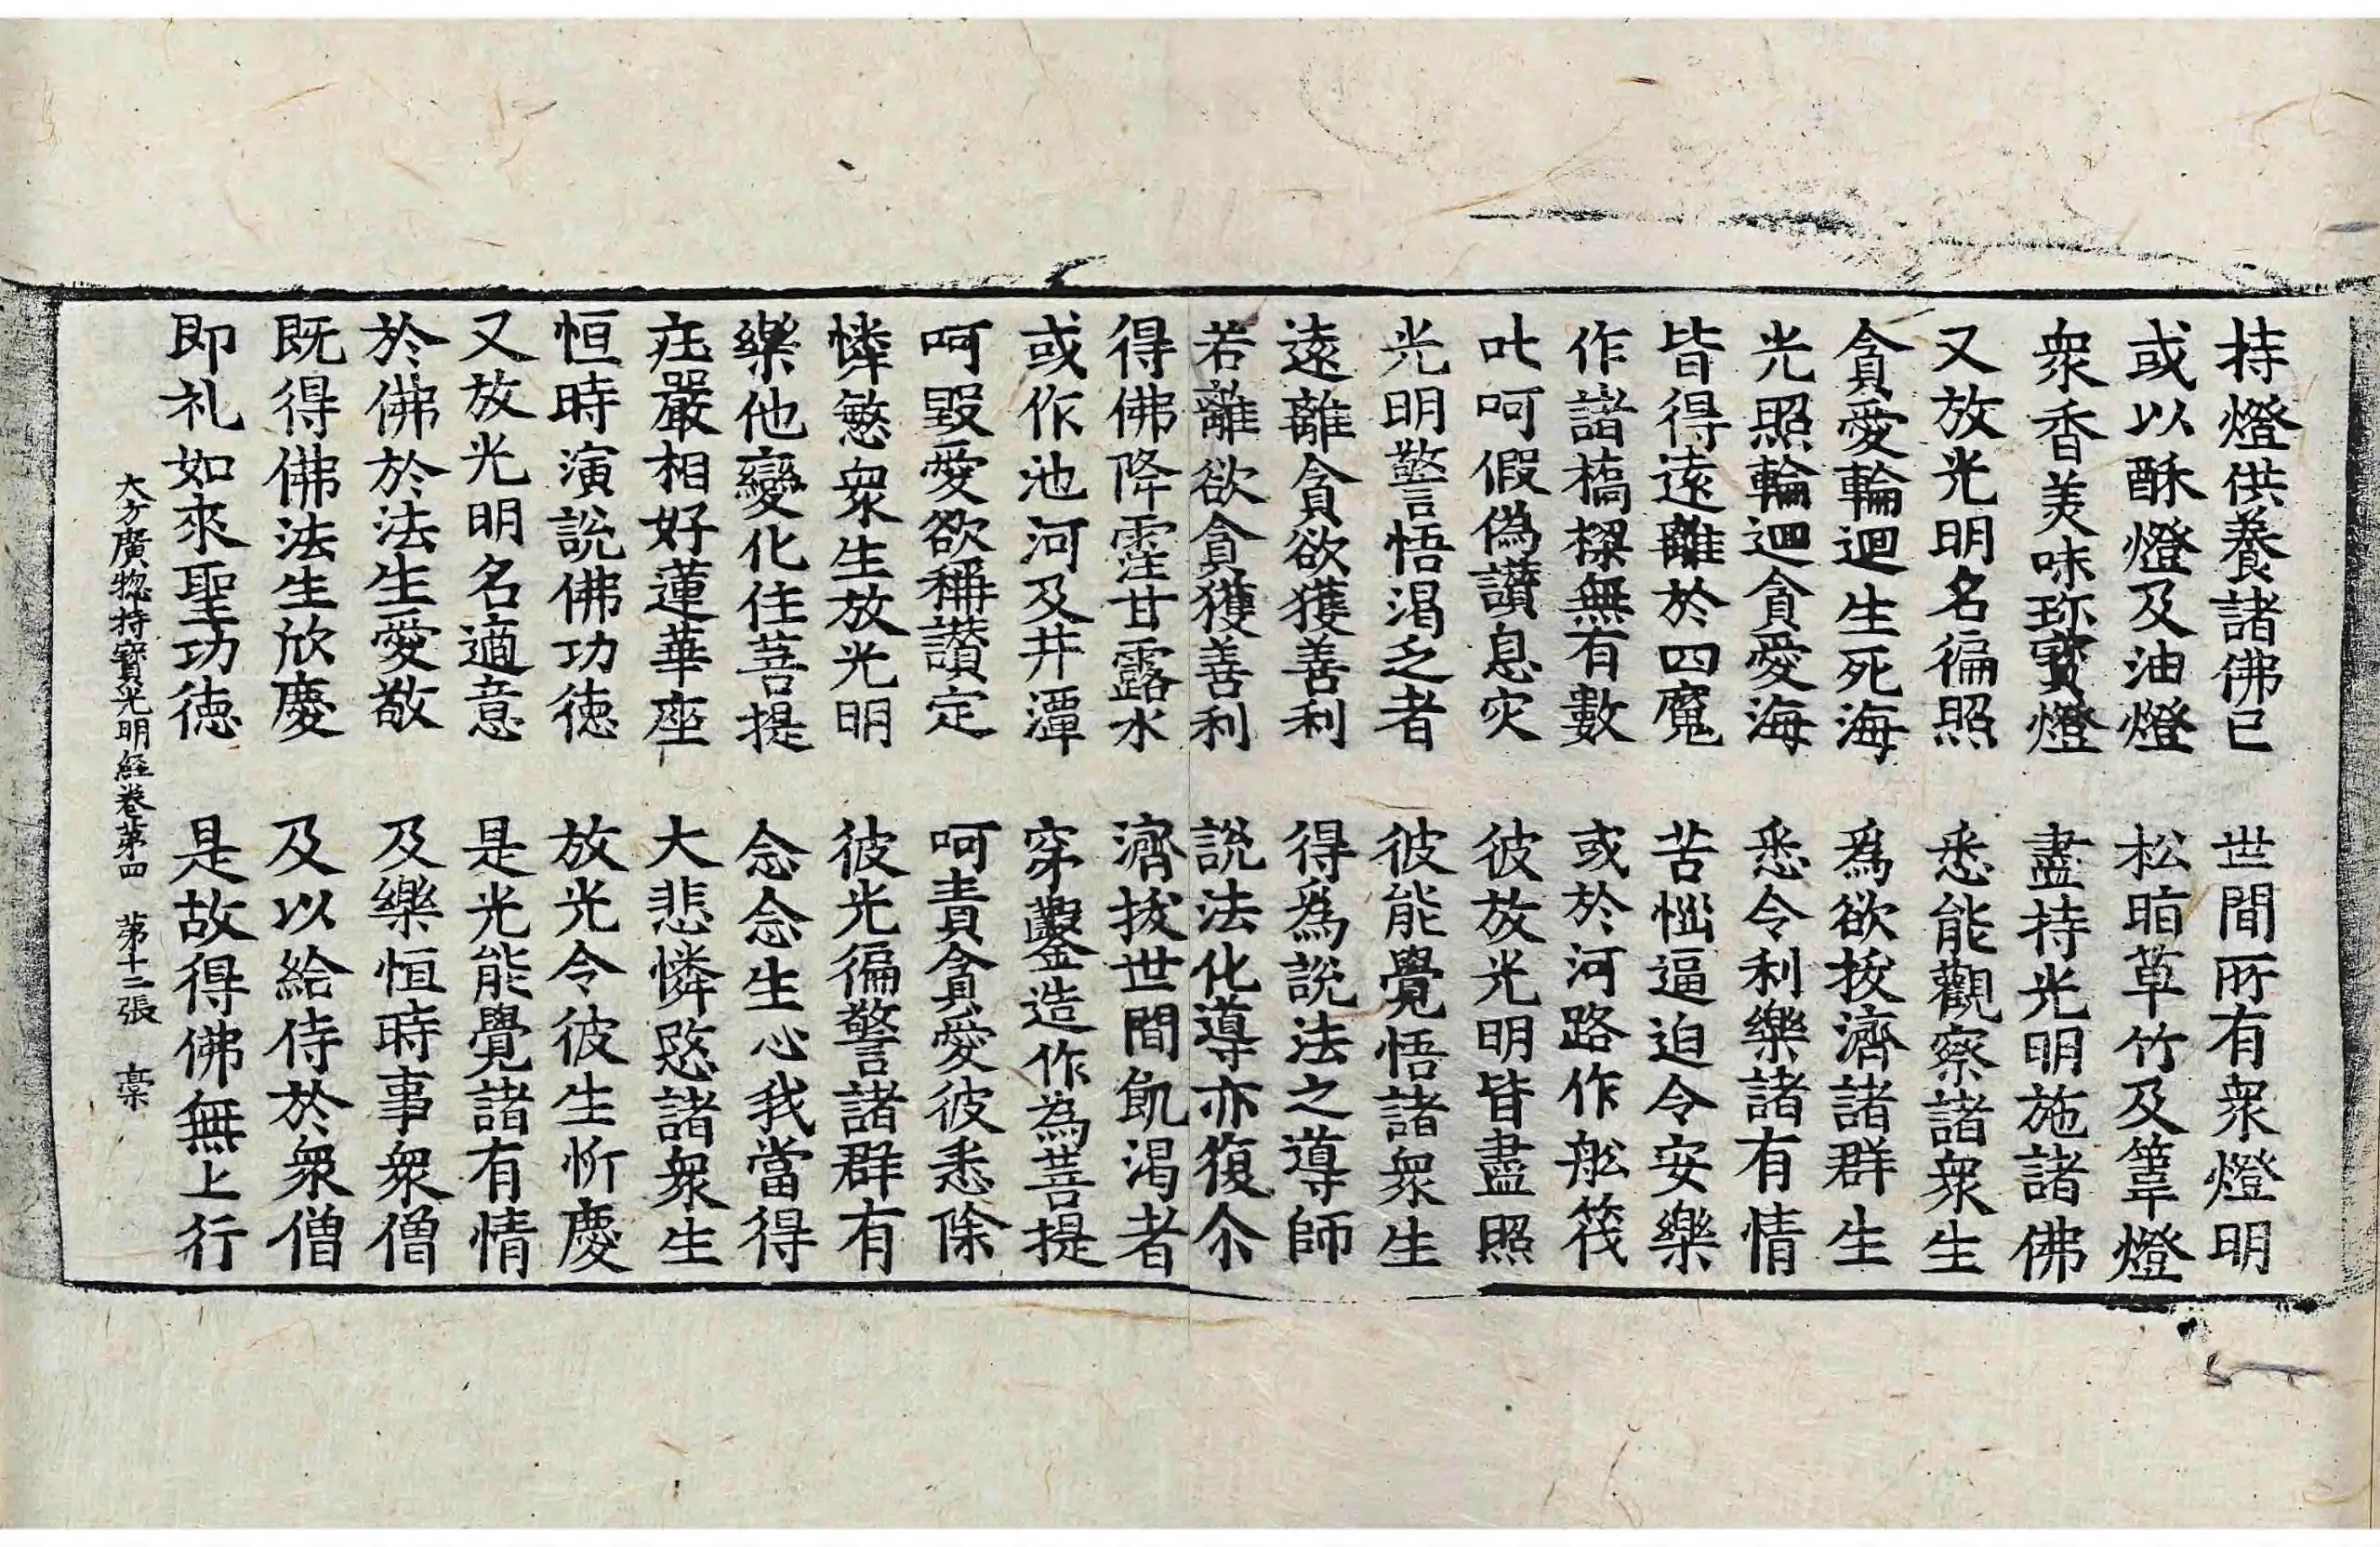 持燈供養諸佛已　世間所有衆燈明
或以酥燈及油燈　松明草竹及葦燈
衆香美味珎寶燈　盡持光明施諸佛
又放光明名徧照　悉能觀察諸衆生
貪愛輪迴生死海　爲欲拔濟諸群生
光照輪迴貪愛海　悉令利樂諸有情
皆得遠離於四魔　苦惱逼迫令安樂
作諸橋樑無有數　或於河路作舩筏
吡呵假偽讚息灾　彼放光明皆盡照
光明警悟渴乏者　彼能覺悟諸衆生
遠離貪欲獲善利　得爲說法之導師
若離欲貪獲善利　說法化導亦復尒
得佛降霔甘露水　濟拔世間飢渴者
或作池河及井潭　穿鑿造作為菩提
呵毀愛欲稱讚定　呵責貪愛彼悉除
憐愍衆生放光明　彼光徧警諸群有
樂他變化住菩提　念念生心我當得
庒嚴相好蓮華座　大悲憐愍諸衆生
恒時演說佛功徳　放光令彼生忻慶
又放光明名適意　是光能覺諸有情
於佛於法生愛敬　及樂恒時事衆僧
既得佛法生欣慶　及以給侍於衆僧
即礼如來聖功徳　是故得佛無上行
大方廣惣持寳光明経卷苐四　苐十二張　槀